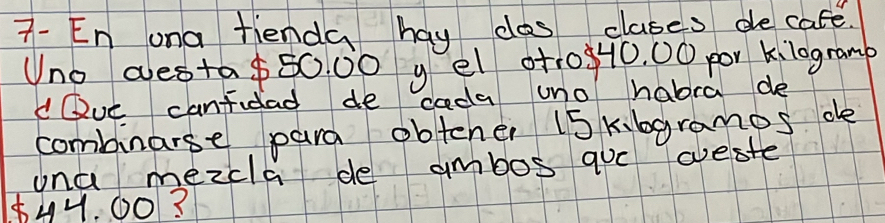 7- En una tienda hay dos clases de café.
Uno cuesta $50.00 y el otro $40.00 por kilogramo
¿Que cantidad de cada uno habra de
combinarse para obtener 15 kilogramos de
una mezcla de ambos que cueste
$44.00?